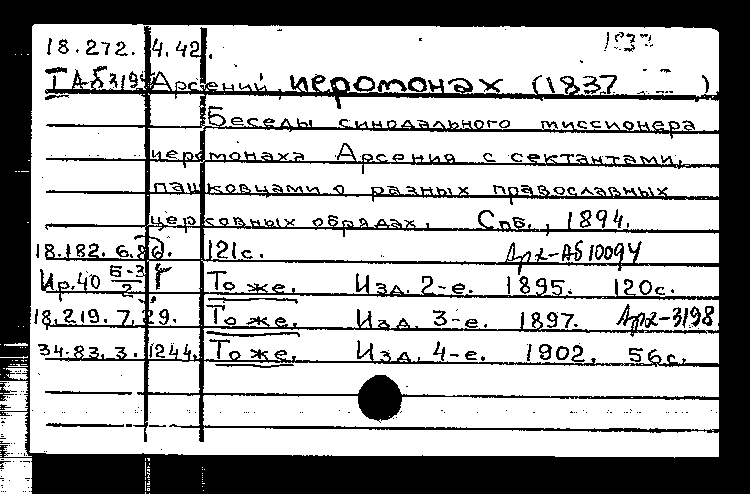 18.272. 4.42. 1837
Т Аб3194 Арсений, иеромонах (1837 )
Беседы синодального миссионера
иеромонаха Арсения с сектантами,
пашковцами о разных православных
церковных обрядах. Спб., 1894.
18.182. 6.86. 121с. Арх-Аб10094
Ир.40 Б-3/2 То же. Изд. 2-е. 1895. 120с.
18.219. 7.29. То же. Изд. 3-е. 1897. Арх-3198
34.83.3.1244. То же. Изд. 4-е. 1902. 56с.